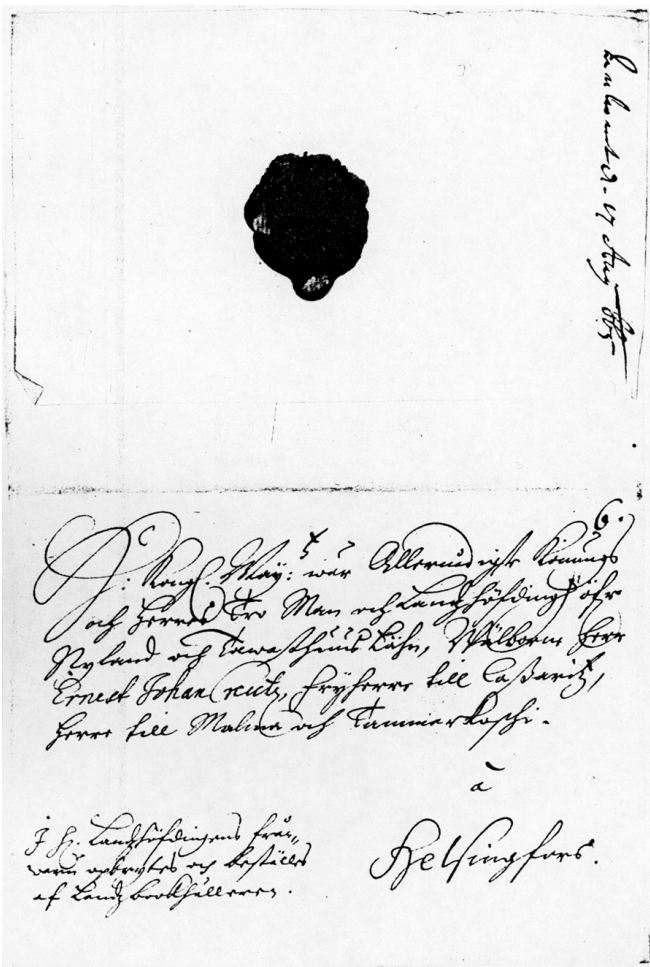 6.
H: Kongl. May:tz wår Allernådigste Konungs
och Herres Tro Man och Landzhöfdingh öfr
Nyland och Tawasthuus Lähn, Wälborne Herr
Ernest Johan Creutz, fryherre till Caßaritz,
Herre till Malma och Tammerkoschi.
ã
Helsingfors.
J H. Landzhöfdingens fråu-
waru opbrytes och beställes
af Landzbookhålleren.